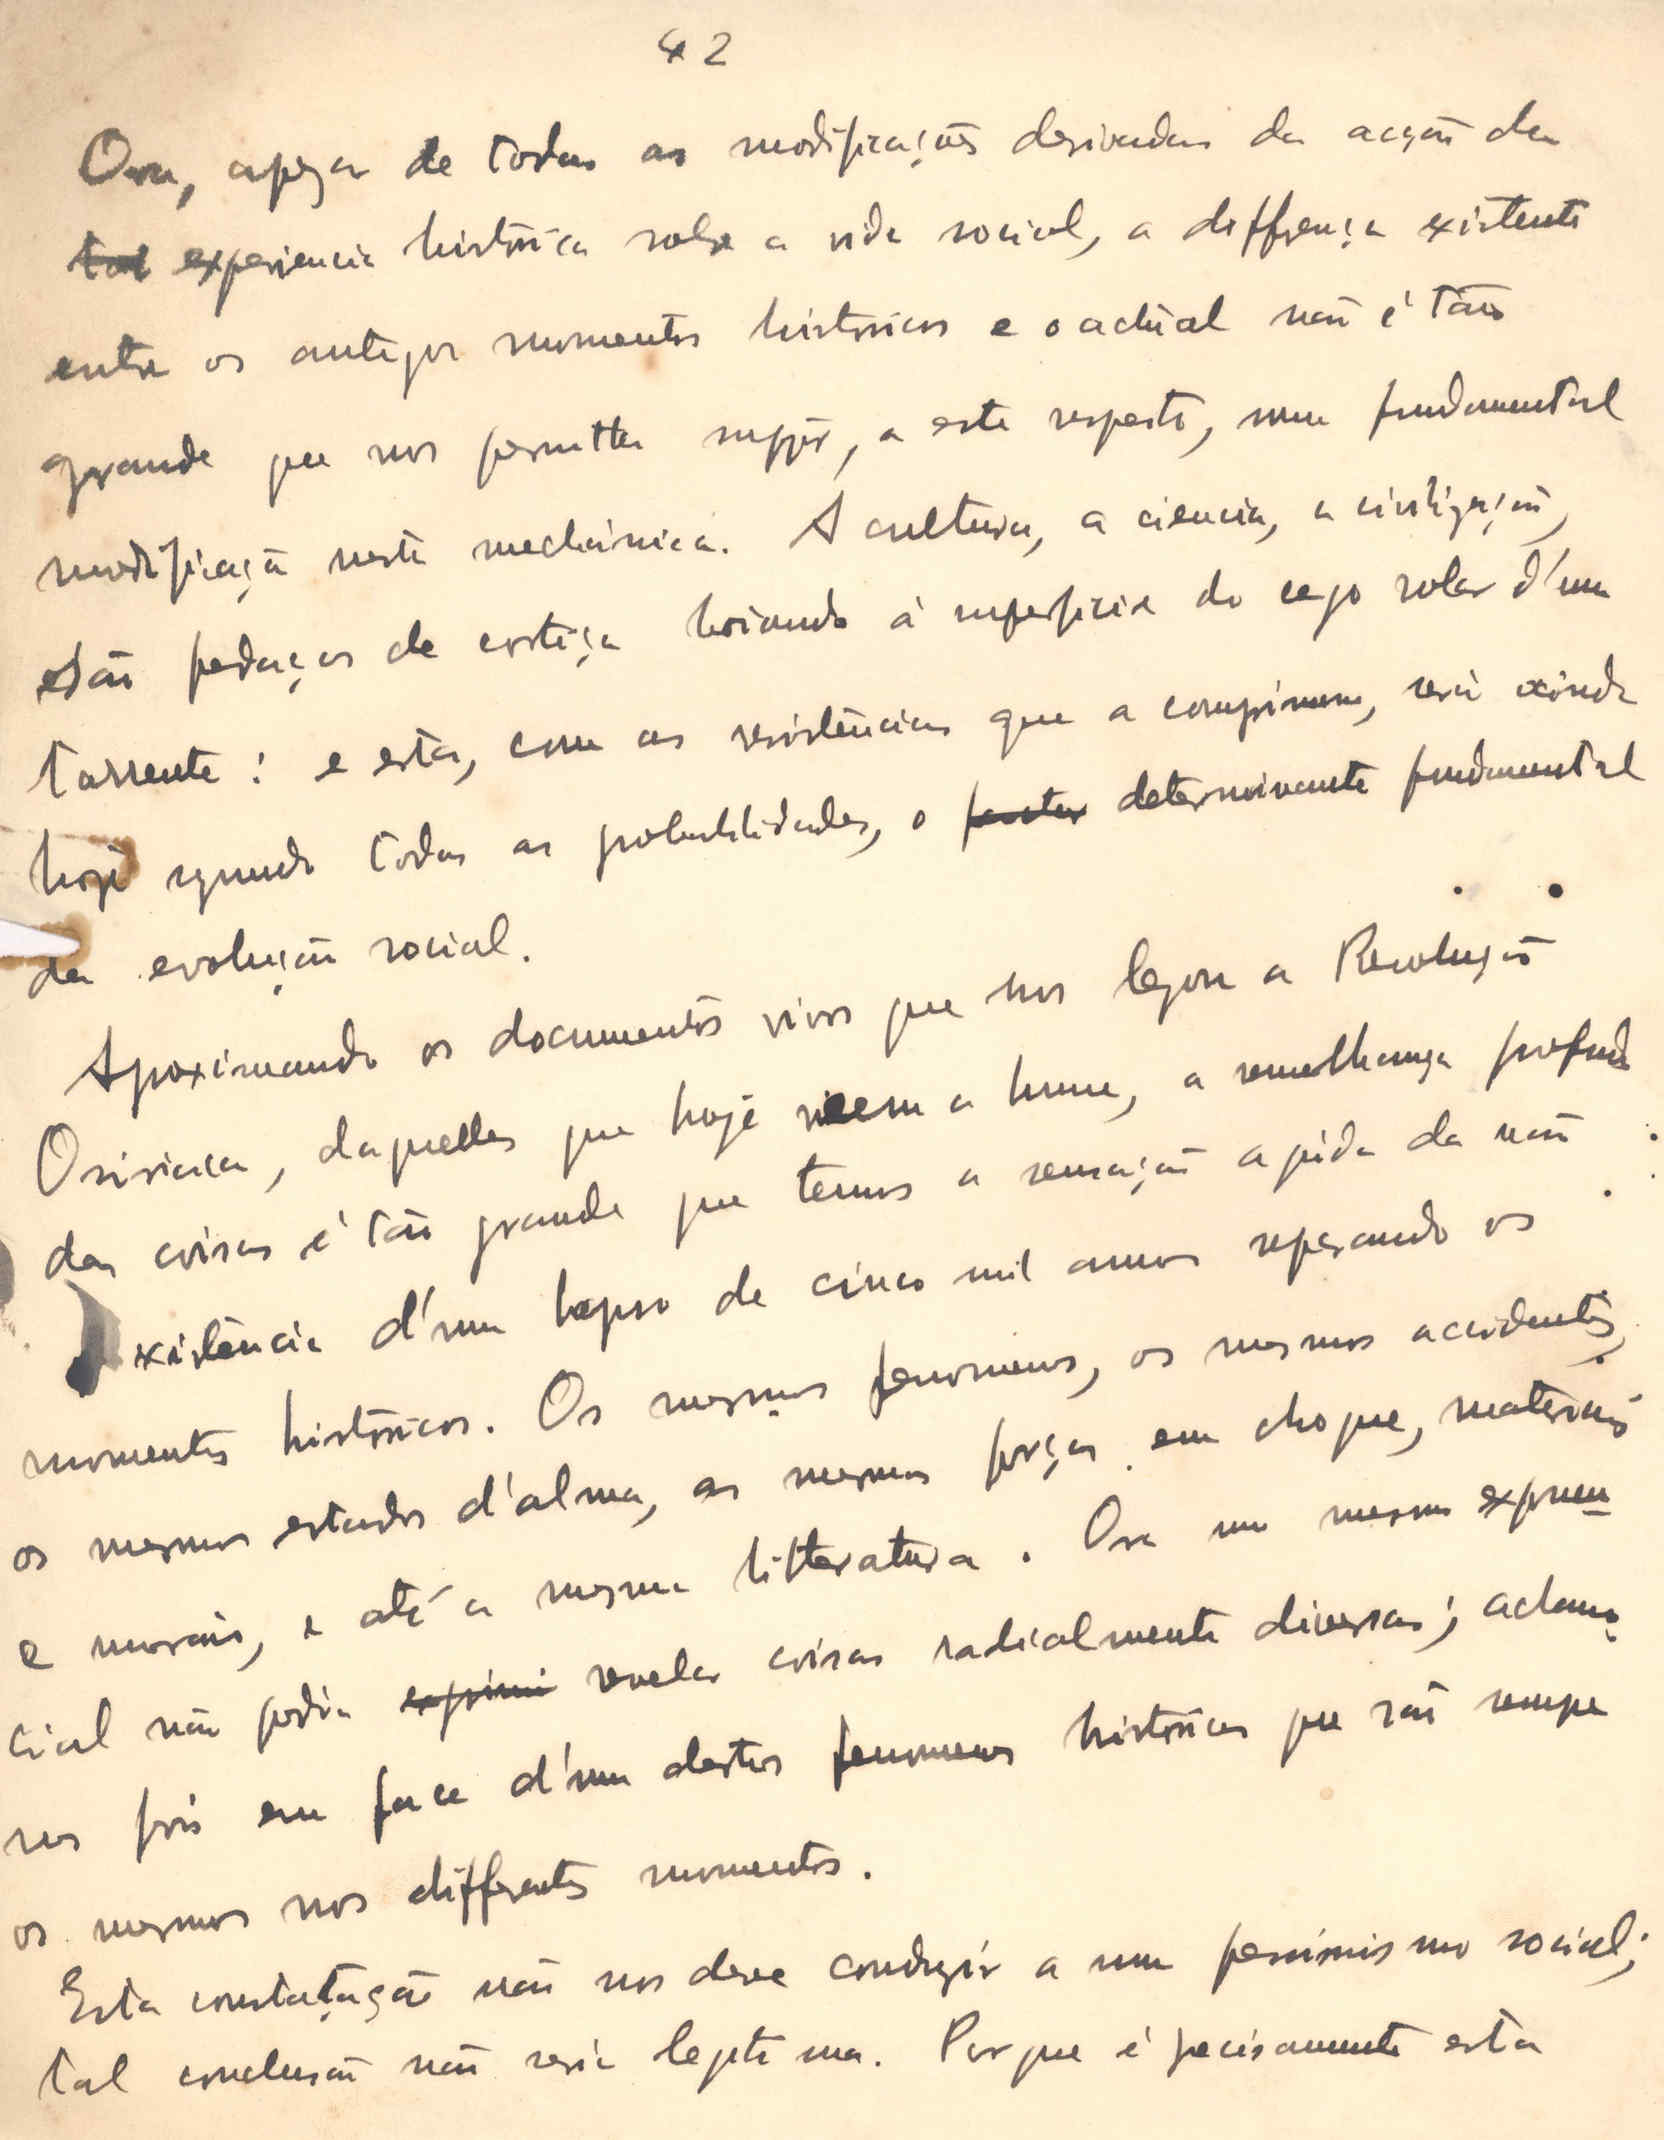 42
Ora, apezar de todas as modificações derivadas da acção da
tal experiencia histórica sobre a vida social, a differença existente
entre os antigos momentos históricos e o actual não é tão
grande que nos permitta suppôr, a este respeito, uma fundamental
modificação neste mechánica. A cultura, a ciencia, a civilização,
são pedaços de cortiça boiando à superficie do cego rolar d'uma
torrente: e esta, com as resistências que a comprimem, será ainda
hoje segundo todas as probabilidades, o factor determinante fundamental
da evolução social.
Aproximando os documentos vivos que nos legou a Revolução
Osiriaca, daquelles que hoje veem a lume, a semelhança profunda
das coisas é tão grande que temos a sensação da não
existência d'um lapso de cinco mil annos separando os
momentos históricos. Os mesmos fenomenos, os mesmos accidentes,
os mesmos estados d'alma, as mesmas forças em choque, materiais
e morais, e até a mesma litteratura. Ora um mesmo expoen
cial não podia exprimir revelar coisas radicalmente diversas; achamo
nos pois em face d'um destes fenomenos históricos que são sempre
os mesmos nos differentes momentos.
Esta constatação não nos deve conduzir a um pessimismo social;
tal conclusão não seria legitima. Porque é precisamente esta